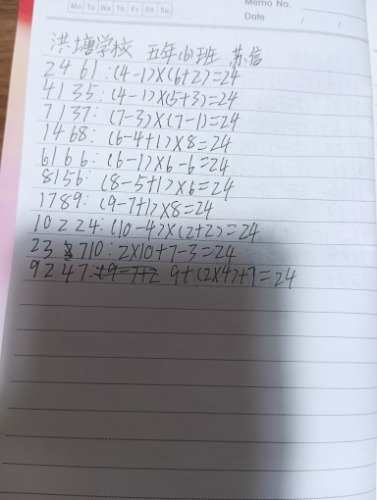 Mo Tu We Th Fr Sa Su
Memo No.
Date / /
洪塘学校 五年(6)班
2 4 6 1 : (4-1)×(6+2)=24
4 1 3 5 : (4-1)×(5+3)=24
7 1 3 7 : (7-3)×(7-1)=24
1 4 6 8 : (6-4+1)×8=24
6 1 6 6 : (6-1)×6-6=24
8 1 5 6 : (8-5+1)×6=24
1 7 8 9 : (9-7+1)×8=24
10 2 2 4 : (10-4)×(2+2)=24
2 3 7 10 : 2×10+7-3=24
9 2 4 7 : 9+(2×4)+7=24